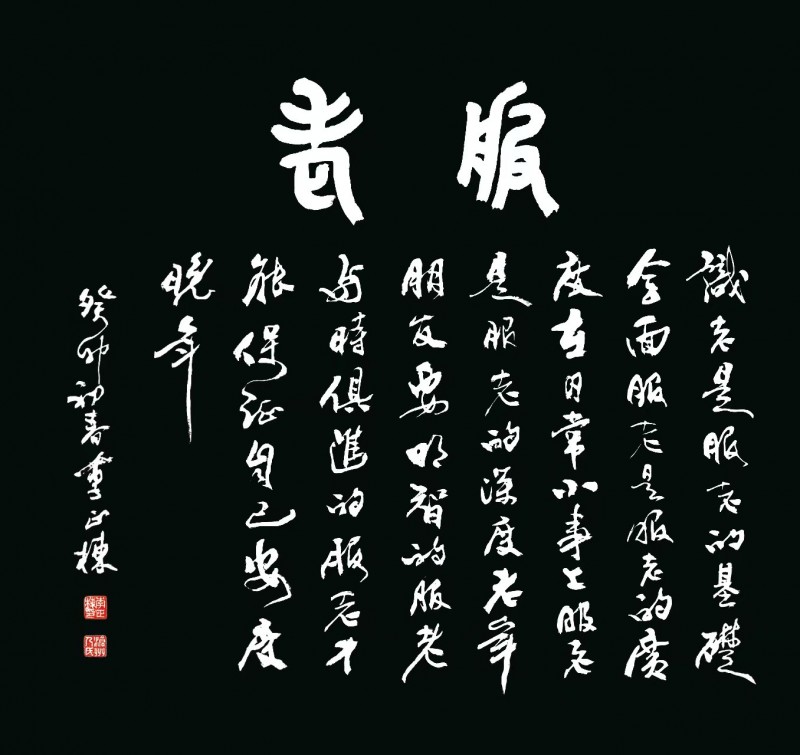 服老
識老是服老的基礎
全面服老是服老的廣
度在日常小事上服老
是服老的深度老年
朋友要明智的服老
與時俱進的服老才
能保证自己安度
晚年
癸卯初春李正棟